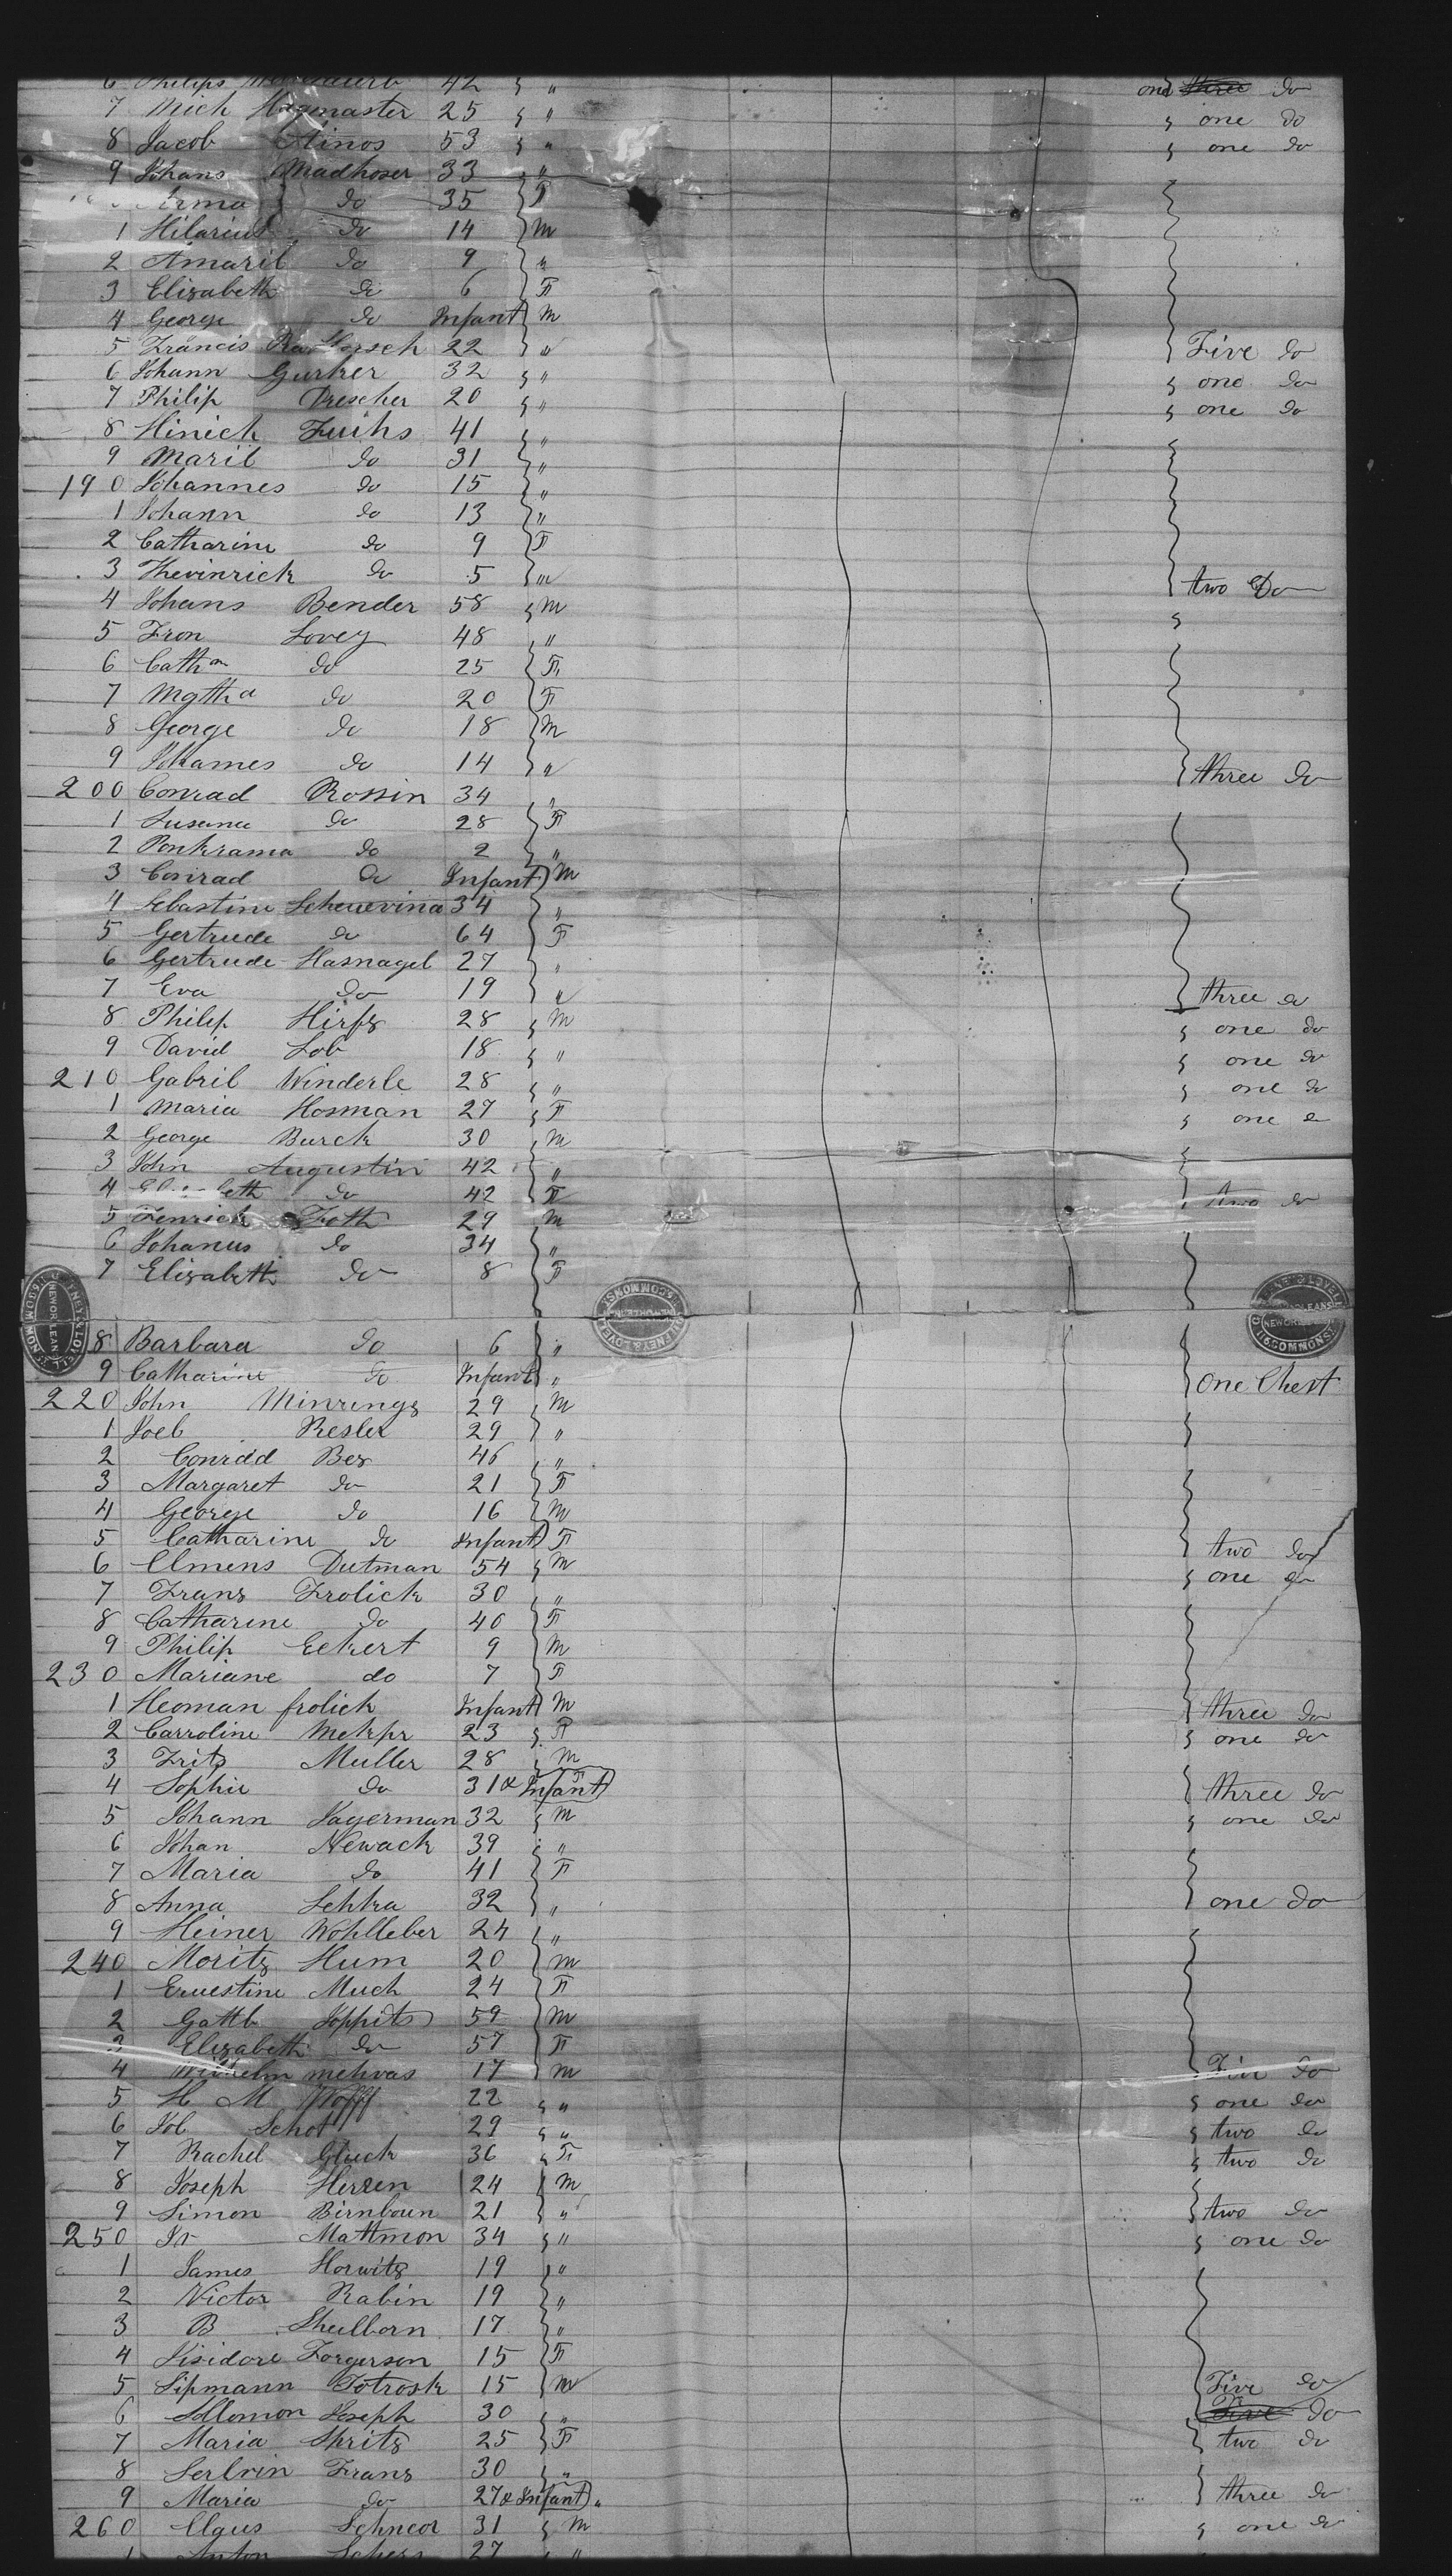 6 Philips 42 " one three do
7 Mich Hagmaster 25 " one do
8 Jacob Ainos 53 " one do
9 Johans Madhoser 33 "
do 35 F
1 Hilarius do 14 M
2 Amaril do 9 "
3 Elisabeth do 6 F
4 George do Infant M
5 Francis 22 " Five do
6 Johann Gurker 32 " one do
7 Philip Drescher 20 " one do
8 Hinich Fuihs 41 "
9 Maril do 31 "
190 Johannes do 15 "
1 Johann do 13 "
2 Catharine do 9 F
3 Thevinrick do 5 m two Do
4 Johans Bender 58 M
5 Fron Lovey 48 "
6 Cathan do 25 F
7 Mgtha do 20 F
8 George do 18 M
9 Johames do 14 " three do
200 Conrad Rossin 34 "
1 Susana do 28 F
2 Ponkrama do 2 "
3 Conrad do Infant M
4 Sebastine Scheuevina 34 "
5 Gertrude do 64 F
6 Gertrude Hasnagel 27 "
7 Eva do 19 " three do
8 Philip Hirfz 28 M one do
9 David Lob 18 " one do
210 Gabril Winderle 28 " one do
1 Maria Hosman 27 F one do
2 George Burck 30 M
3 John Augustin 42 "
4 do 42 F two do
5 Fenrick Foth 29 M
6 Johanus do 34 "
7 Elizabeth do 8 F
8 Barbara do 6 "
9 Catharine do Infant " One Chest
220 John Minrings 29 M
1 Joel Resler 29 "
2 Conrad Bez 46 "
3 Margaret do 21 F
4 George do 16 M
5 Catharine do Infant F two do
6 Clmens Dutman 54 M one do
7 Franz Frolick 30 "
8 Catharine do 40 F
9 Philip Eckert 9 M
230 Mariane do 7 F
1 Heoman frolick Infant M three do
2 Carroline Mekpr 23 F one do
3 Fritz Muller 28 M
4 Sophie do 31 & Infant F three do
5 Johann Jagerman 32 M one do
6 Johan Newack 39 "
7 Maria do 41 F
8 Anna Sehka 32 " one do
9 Heiner Wohlleber 24 "
240 Moritz Hum 20 M
1 Ernestine Much 24 F
2 Gottb Joppits 59 M
3 Elizabeth do 57 F
4 Wilhelm mehvas 17 M Five do
5 H M Wolff 22 " one do
6 Job Schot 29 " two do
7 Rachel Gluck 36 F two do
8 Joseph Herren 24 M
9 Simon Birnboun 21 " two do
250 Is Mattmon 34 " one do
1 James Horwitz 19 "
2 Victor Rabin 19 "
3 B Sheelborn 17 "
4 Jisidore Forgerson 15 F
5 Lipmann Totrosk 15 M Five do
6 Sollomon Joseph 30 " Five do
7 Maria Shritz 25 F two do
8 Serbrin Franz 30 "
9 Maria do 27 & Infant " three do
260 Claus Schneor 31 M one do
1 Anton Schers 27 "